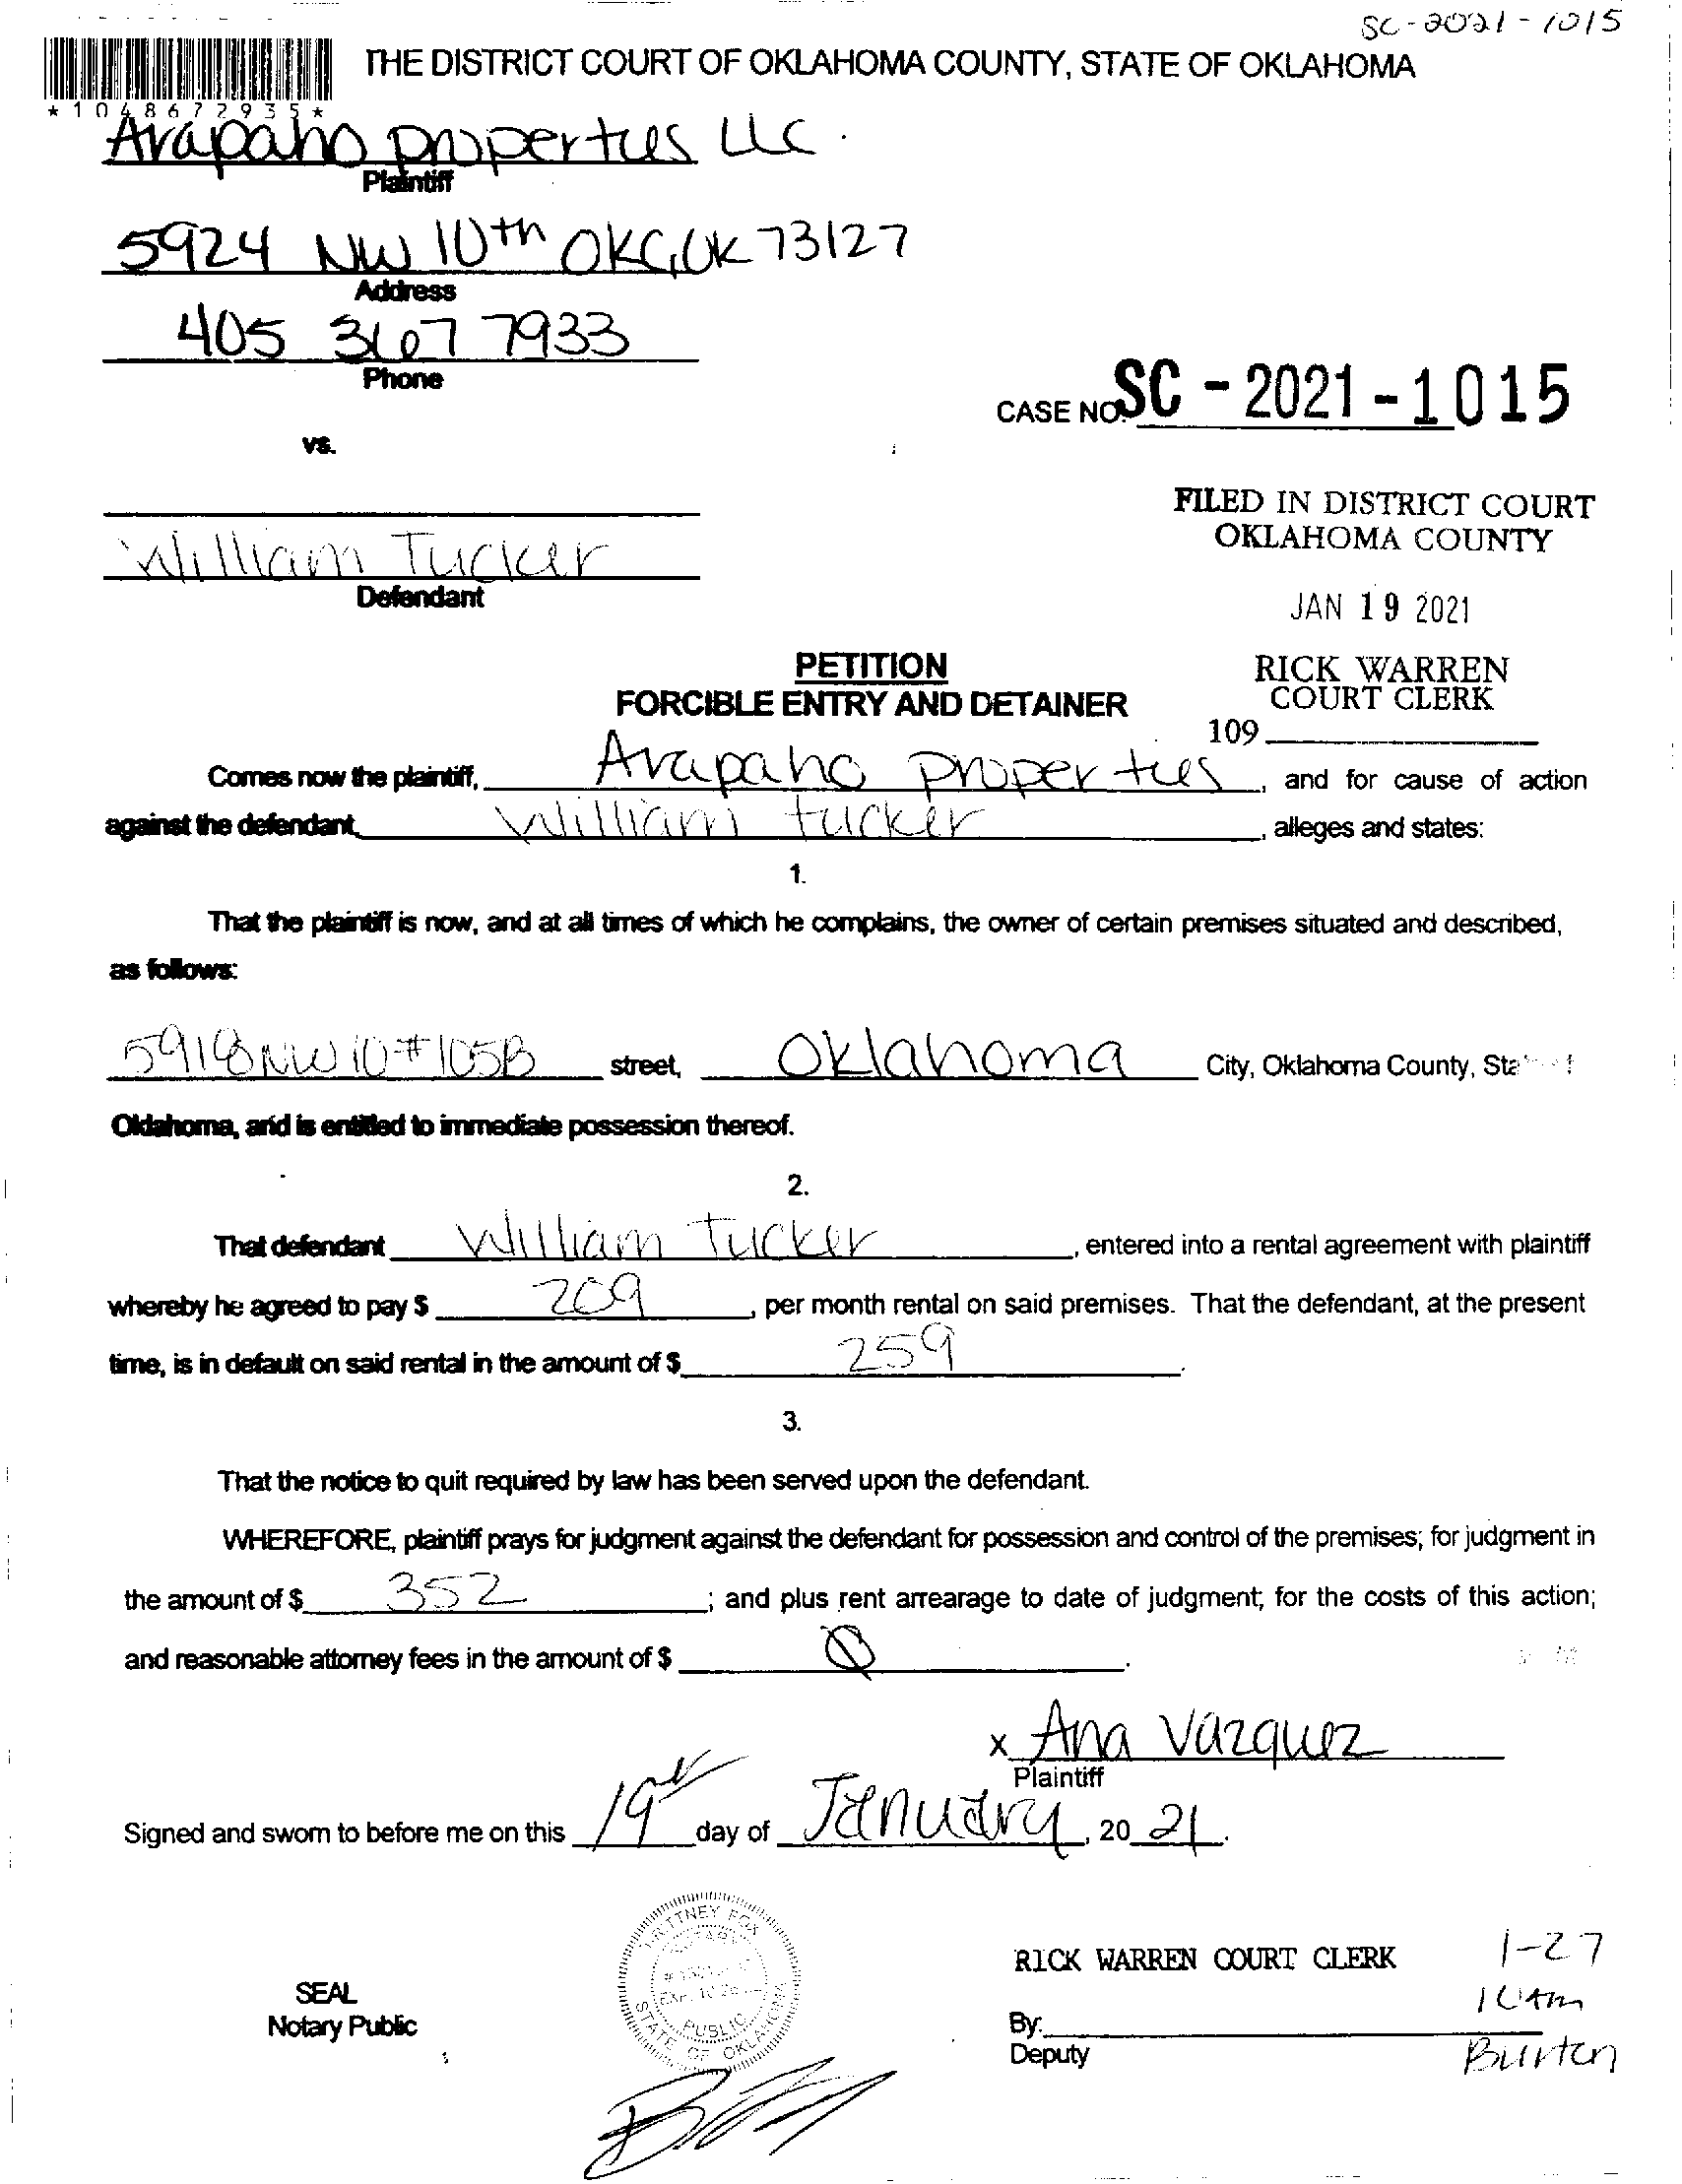 SC-2021-1015
THE DISTRICT COURT OF OKLAHOMA COUNTY, STATE OF OKLAHOMA
*1048672935*
Arapaho properties LLC.
Plaintiff
5924 NW 10th OKC, OK 73127
Address
405 367 7933
Phone
CASE NO. SC - 2021 - 1015
vs.
FILED IN DISTRICT COURT
OKLAHOMA COUNTY
William Tucker
Defendant
JAN 19 2021
PETITION
FORCIBLE ENTRY AND DETAINER
RICK WARREN
COURT CLERK
109
Comes now the plaintiff, Arapaho properties, and for cause of action
against the defendant, William tucker, alleges and states:
1.
That the plaintiff is now, and at all times of which he complains, the owner of certain premises situated and described,
as follows:
5918 NW 10 #105B street, Oklahoma City, Oklahoma County,
Oklahoma, and is entitled to immediate possession thereof.
2.
That defendant William Tucker, entered into a rental agreement with plaintiff
whereby he agreed to pay $ 209, per month rental on said premises. That the defendant, at the present
time, is in default on said rental in the amount of $ 259.
3.
That the notice to quit required by law has been served upon the defendant.
WHEREFORE, plaintiff prays for judgment against the defendant for possession and control of the premises; for judgment in
the amount of $ 352; and plus rent arrearage to date of judgment; for the costs of this action;
and reasonable attorney fees in the amount of $ Ø.
x Ana Vazquez
Plaintiff
Signed and sworn to before me on this 19th day of January, 2021.
SEAL
Notary Public
PUBLIC
STATE OF OKLAHOMA
RICK WARREN COURT CLERK
1-27
10Am
By:
Deputy
Burton